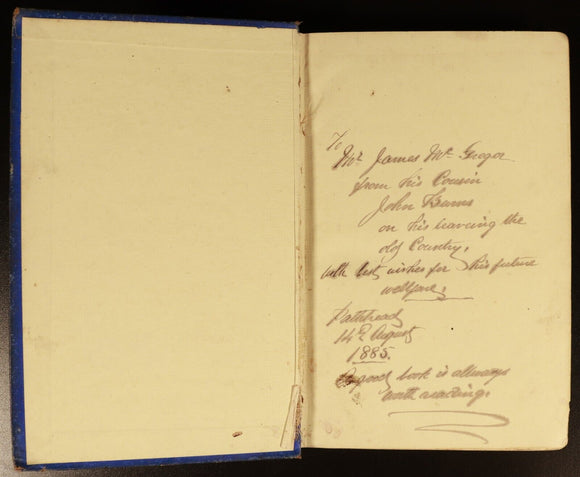 To
Mr. James Mc Gregor
from his Cousin
John
on his leaving the
old Country,
with best wishes for his future
welfare,
Pathhead
14th August
1885.
A good book is allways
worth reading.